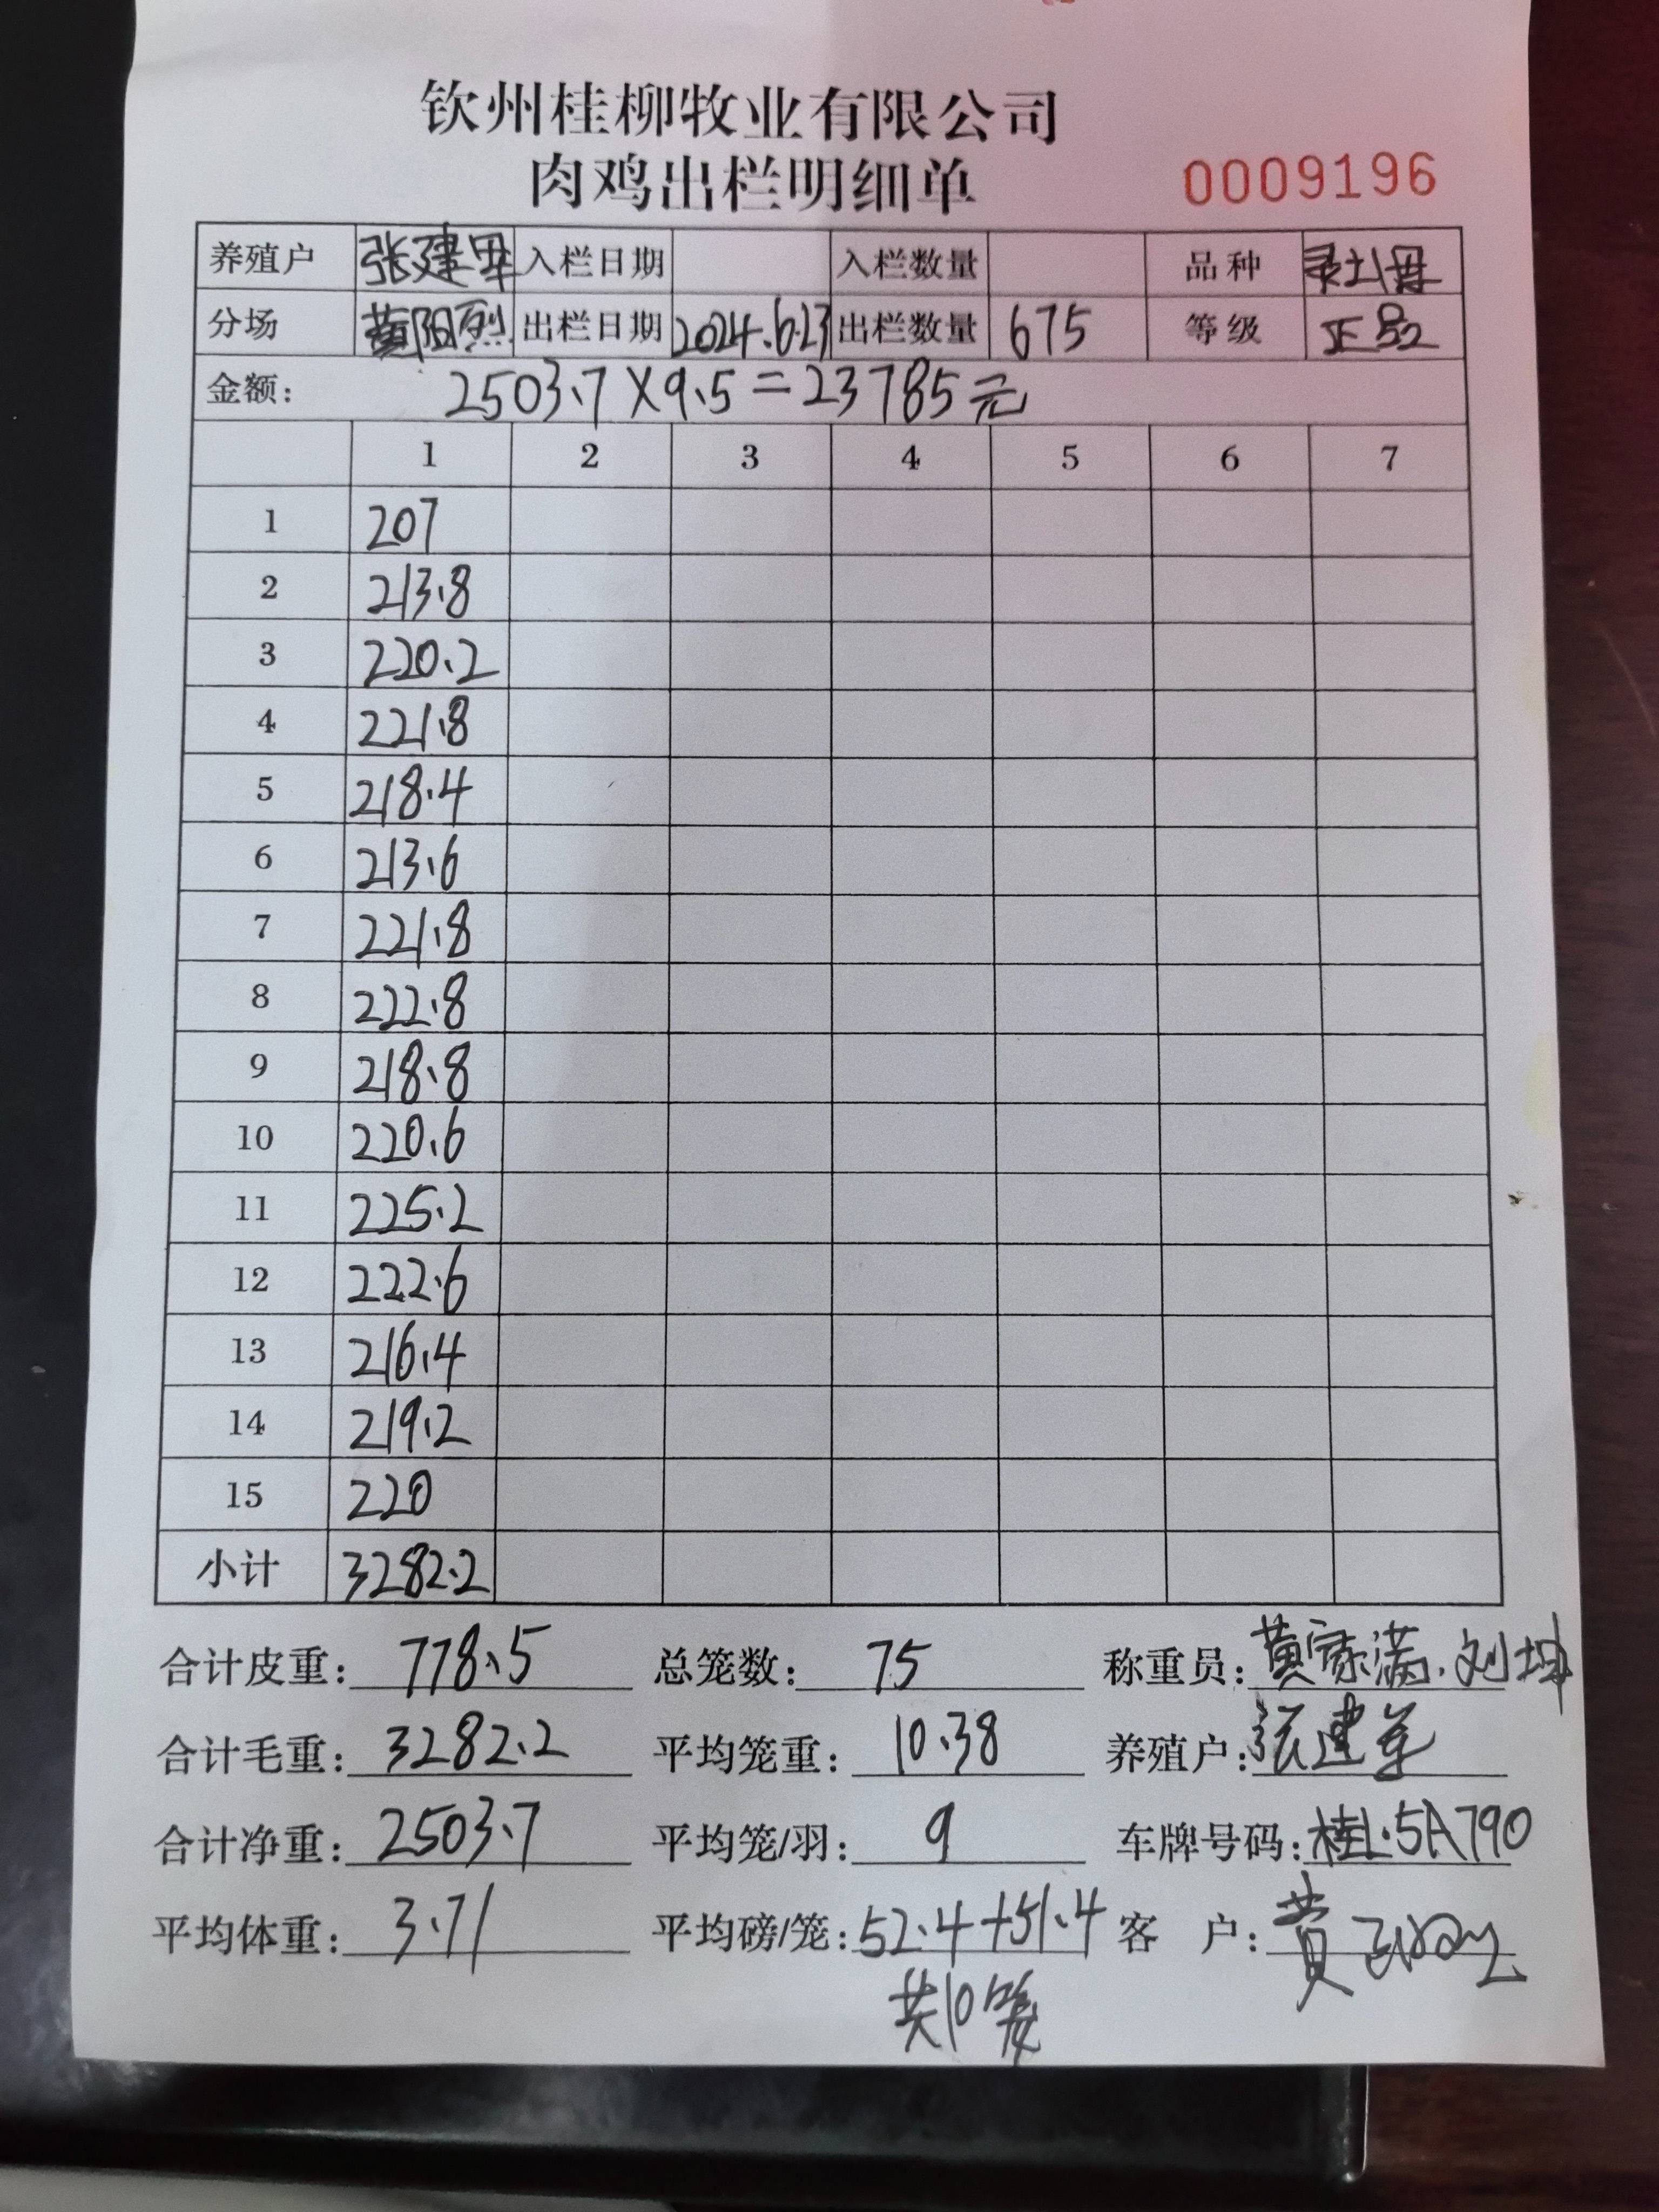 钦州桂柳牧业有限公司
肉鸡出栏明细单 0009196
养殖户 张建军 入栏日期 入栏数量 品种
分场 黄阳烈 出栏日期 2024.6.23 出栏数量 675 等级 正品
金额： 2503.7×9.5=23785元
1 2 3 4 5 6 7
1 207
2 213.8
3 220.2
4 221.8
5 218.4
6 213.6
7 221.8
8 222.8
9 218.8
10 220.6
11 225.2
12 222.6
13 216.4
14 219.2
15 220
小计 3282.2
合计皮重： 778.5 总笼数： 75 称重员：黄家满.刘坤
合计毛重： 3282.2 平均笼重： 10.38 养殖户：张建军
合计净重： 2503.7 平均笼/羽： 9 车牌号码：桂L.5A790
平均体重： 3.71 平均磅/笼：52.4+51.4 客 户：黄
共10笼